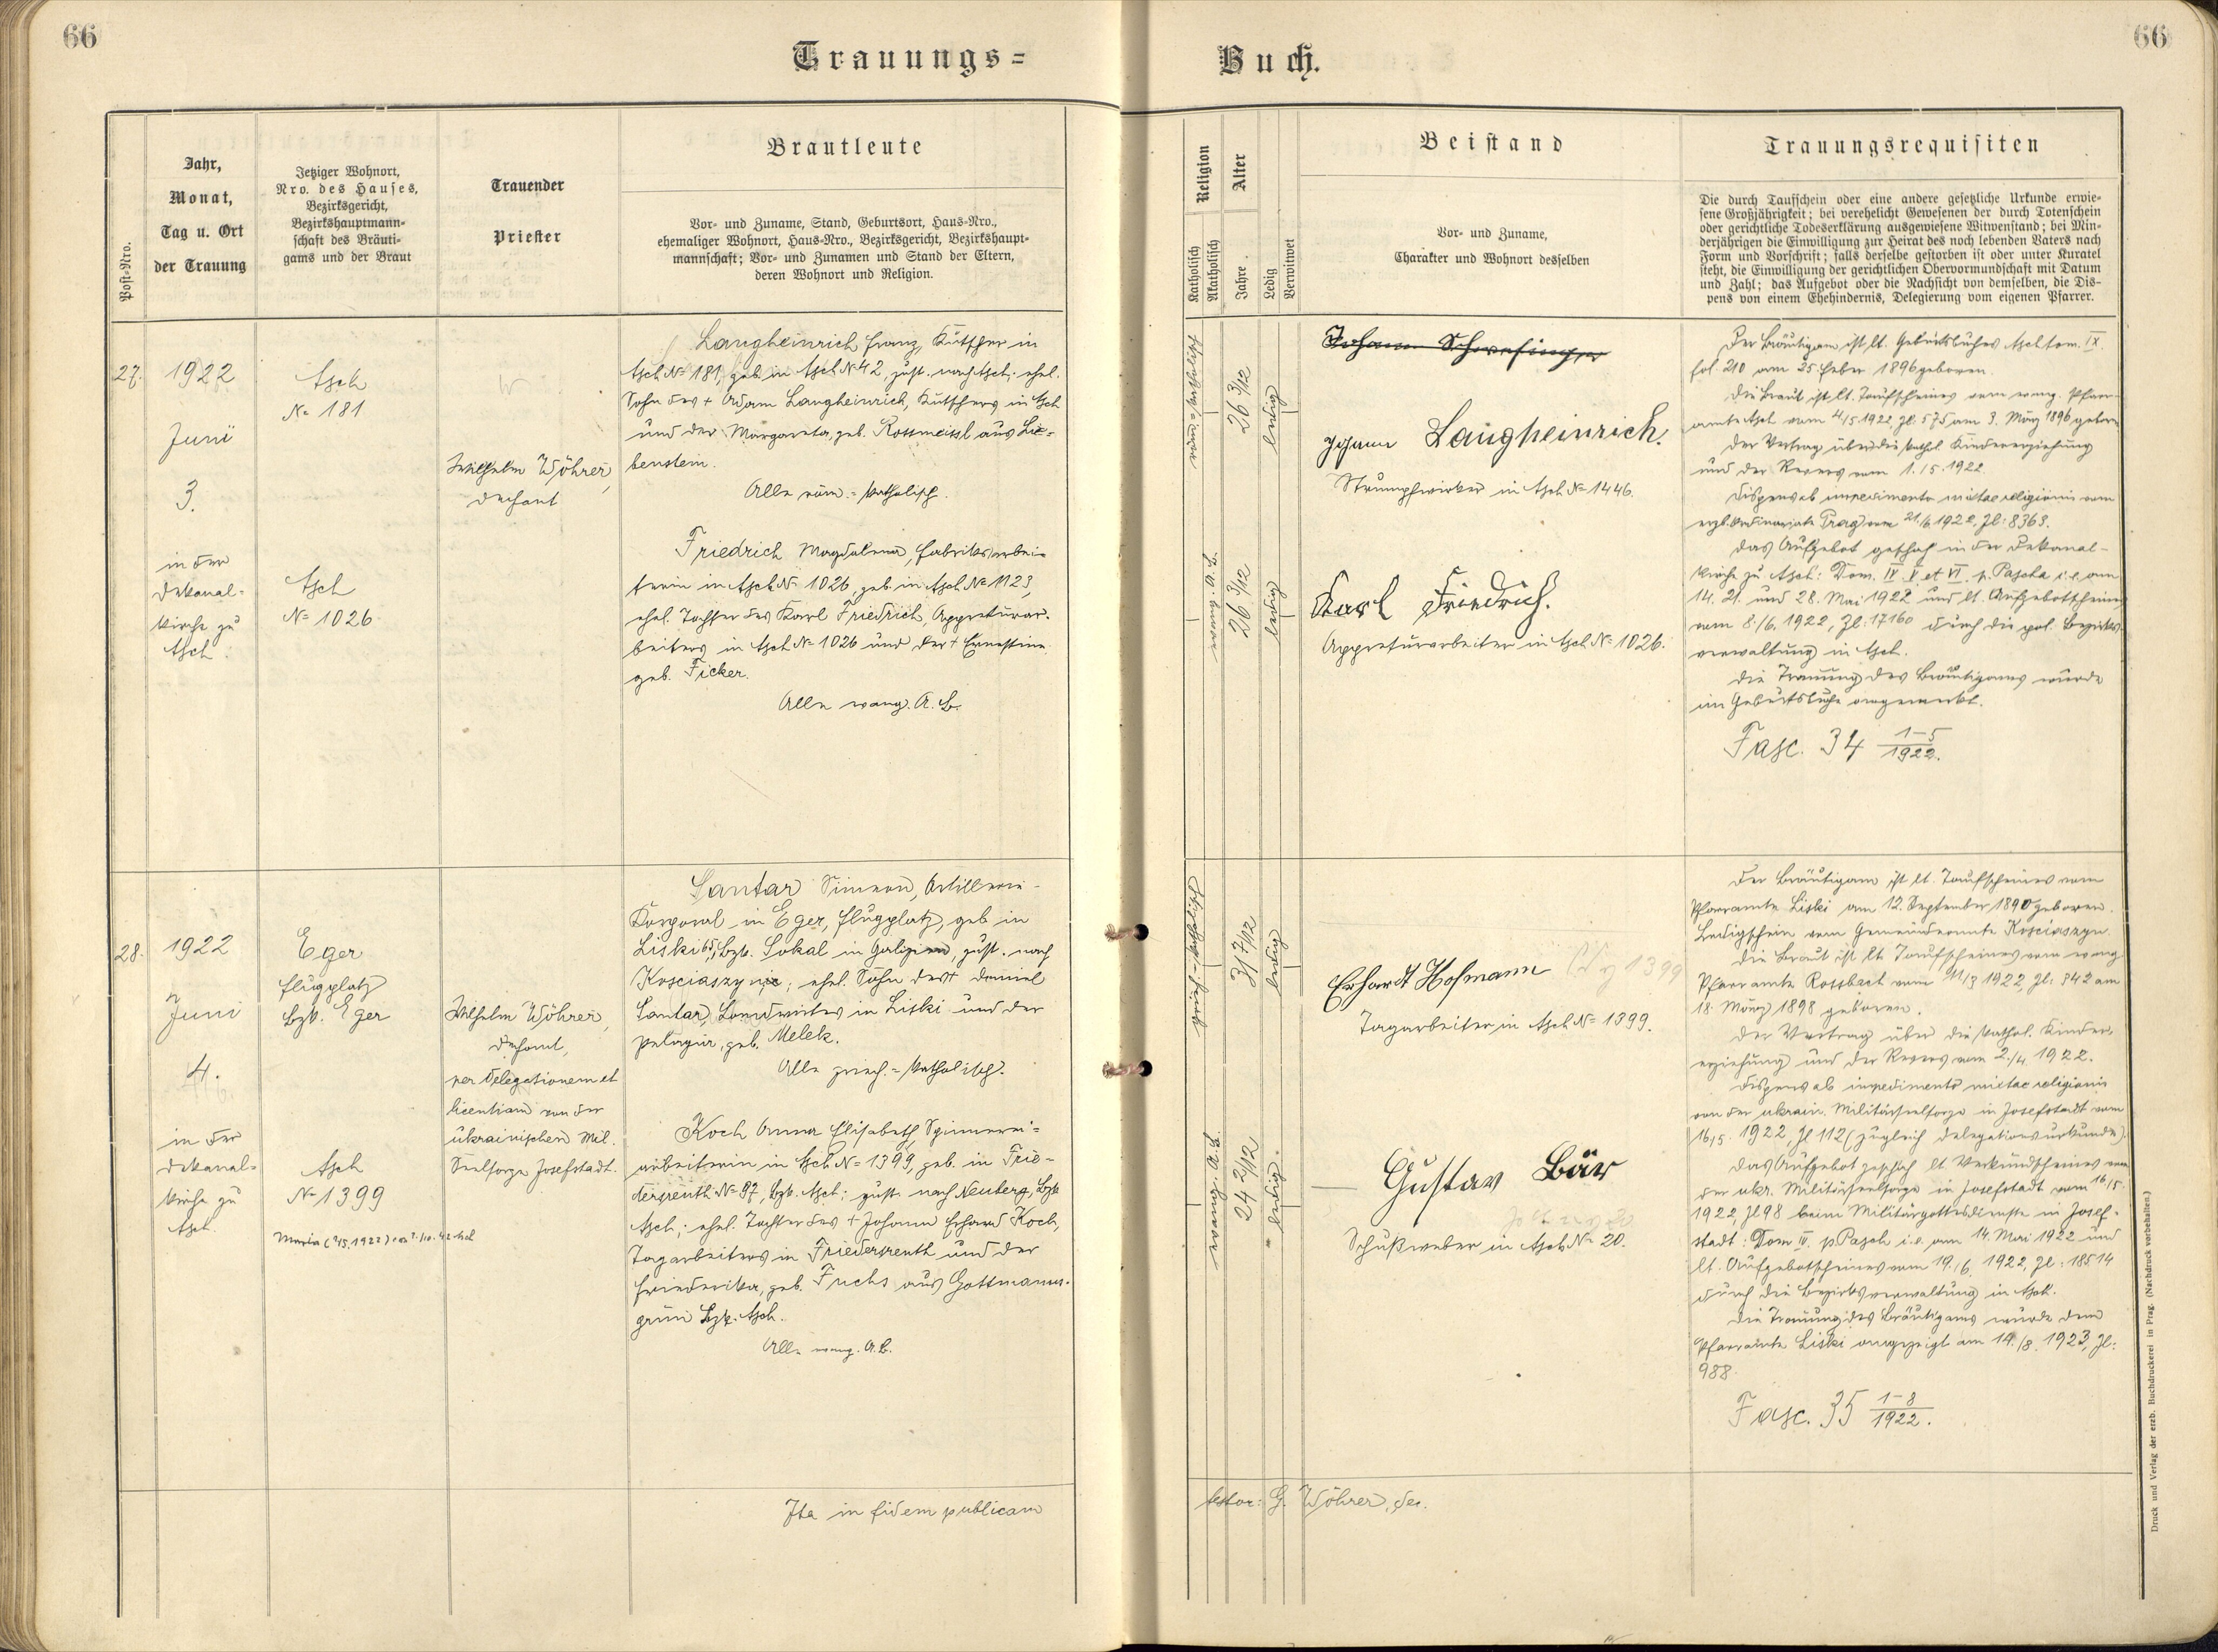 66
Trauungs=
Post-Nro.
Jahr,
Monat,
Tag u. Ort
der Trauung
Jetziger Wohnort,
Nro. des Hauses,
Bezirksgericht,
Bezirkshauptmann-
schaft des Bräuti-
gams und der Braut
Trauender
Priester
Brautleute
Vor- und Zuname, Stand, Geburtsort, Haus-Nro.,
ehemaliger Wohnort, Haus-Nro., Bezirksgericht, Bezirkshaupt-
mannschaft; Vor- und Zunamen und Stand der Eltern,
deren Wohnort und Religion.
27.
1922
Juni
3.
in der
Dekanal-
kirche zu
Asch.
Asch
No 181
Asch
No 1026
Wilhelm Wöhrer,
Dechant
Langheinrich Franz, Kutscher in
Asch No 181, geb. in Asch No 42, zust. nach Asch; ehel.
Sohn des + Adam Langheinrich, Kutschers in Asch
und der Margareta, geb. Rossmeissl aus Lie-
benstein.
Alle röm.-katholisch.
Friedrich Magdalena, Fabriksarbei-
terin in Asch No 1026, geb. in Asch No 1123,
ehel. Tochter des Karl Friedrich, Appreturar-
beiters in Asch No 1026 und der + Ernestine
geb. Ficker.
Alle evang. A. B.
28.
1922
Juni
4.
in der
Dekanal-
kirche zu
Asch.
Eger
Flugplatz
Bzk. Eger
Asch
No 1399
Wilhelm Wöhrer,
Dechant,
per delegationem et
licentiam von der
ukrainischen Mil.
Seelsorge Josefstadt.
Santar Simeon, Artillerie-
Korporal in Eger, Flugplatz, geb. in
Liski 65, Bzk. Sokal in Galizien, zust. nach
; ehel. Sohn des + Daniel
Santar, Landwirtes in Liski und der
Pelagia, geb. Melek.
Alle griech.-katholisch.
Koch Anna Elisabeth, Spinnerei-
arbeiterin in Asch No 1399, geb. in Frie-
dersreuth No 87, Bzk. Asch; zust. nach Neuberg, Bzk
Asch; ehel. Tochter des + Johann Erhard Koch,
Tagarbeiters in Friedersreuth und der
Friederika, geb. Fuchs aus Gottmanns-
grün Bzk. Asch.
Alle evang. A. B.
Ita in fidem publicam
66
Buch.
Religion
Katholisch
Akatholisch
Alter
Jahre
Ledig
Verwitwet
Beistand
Vor- und Zuname,
Charakter und Wohnort desselben
Trauungsrequisiten
Die durch Taufschein oder eine andere gesetzliche Urkunde erwie-
sene Großjährigkeit; bei verehelicht Gewesenen der durch Totenschein
oder gerichtliche Todeserklärung ausgewiesene Witwenstand; bei Min-
derjährigen die Einwilligung zur Heirat des noch lebenden Vaters nach
Form und Vorschrift; falls derselbe gestorben ist oder unter Kuratel
steht, die Einwilligung der gerichtlichen Obervormundschaft mit Datum
und Zahl; das Aufgebot oder die Nachsicht von demselben, die Dis-
pens von einem Ehehindernis, Delegierung vom eigenen Pfarrer.
26 3/12
ledig
evang. A. B.
26 3/12
ledig
Johann Langheinrich.
Strumpfwirker in Asch No 1446.
Karl Friedrich.
Appreturarbeiter in Asch No 1026.
Der Bräutigam ist lt. Geburtsbuches Asch tom. IX.
fol. 210 am 25. Feber 1896 geboren.
Die Braut ist lt. Taufscheines vom evang. Pfarr-
amte Asch vom 4/5 1922, Zl. 575 am 3. März 1896 geboren
Der Vertrag über die kathol. Kindererziehung
und der Revers vom 1./5. 1922.
Dispens ab impedimento mixtae religionis vom
erzb. Ordinariate Prag vom 1922, Zl: 8363.
Das Aufgebot geschah in der Dekanal-
kirche zu Asch: Dom. IV. V. et VI. p. Pascha i. e. am
14. 21. und 28. Mai 1922 und lt. Aufgebotscheines
vom 8./6. 1922, Zl: 17160 durch die pol. Bezirks-
verwaltung in Asch.
Die Trauung des Bräutigams wurde
im Geburtsbuche angemerkt.
Fasc. 34 1-5/1922.
griech.-kathol.
31 7/12
ledig
evang. A. B.
24 2/12
ledig.
Erhardt Hofmann
1399
Tagarbeiter in Asch No 1399.
Gustav Bär
Schußweber in Asch No 20.
Der Bräutigam ist lt. Taufscheines vom
Pfarramte Liski am 12. September 1890 geboren.
Ledigschein vom Gemeindeamte
Die Braut ist lt. Taufscheines vom evang
Pfarramte Rossbach vom 11/3 1922, Zl: 842 am
18. März 1898 geboren.
Der Vertrag über die kathol. Kinder-
erziehung und der Revers vom 2./4. 1922.
Dispens ab impedimento mixtae religionis
von der ukrain. Militärseelsorge in Josefstadt vom
16/5. 1922, Zl 112 (zugleich Delegationsurkunde).
Das Aufgebot geschah lt. Verkündscheines von
der ukr. Militärseelsorge in Josefstadt vom 16/5.
1922, Zl 98 beim Militärgottesdienste in Josef-
stadt: Dom IV. p. Pasch i. e. am 14. Mai 1922 und
lt. Aufgebotscheines vom 19./6. 1922, Zl: 18514
durch die Bezirksverwaltung in Asch.
Die Trauung des Bräutigams wurde dem
Pfarramte Liski angezeigt am 14./8. 1923, Zl:
988.
Fasc. 35 1-8/1922.
testor: G. Wöhrer, Dec.
Druck und Verlag der erzb. Buchdruckerei in Prag. (Nachdruck vorbehalten.)